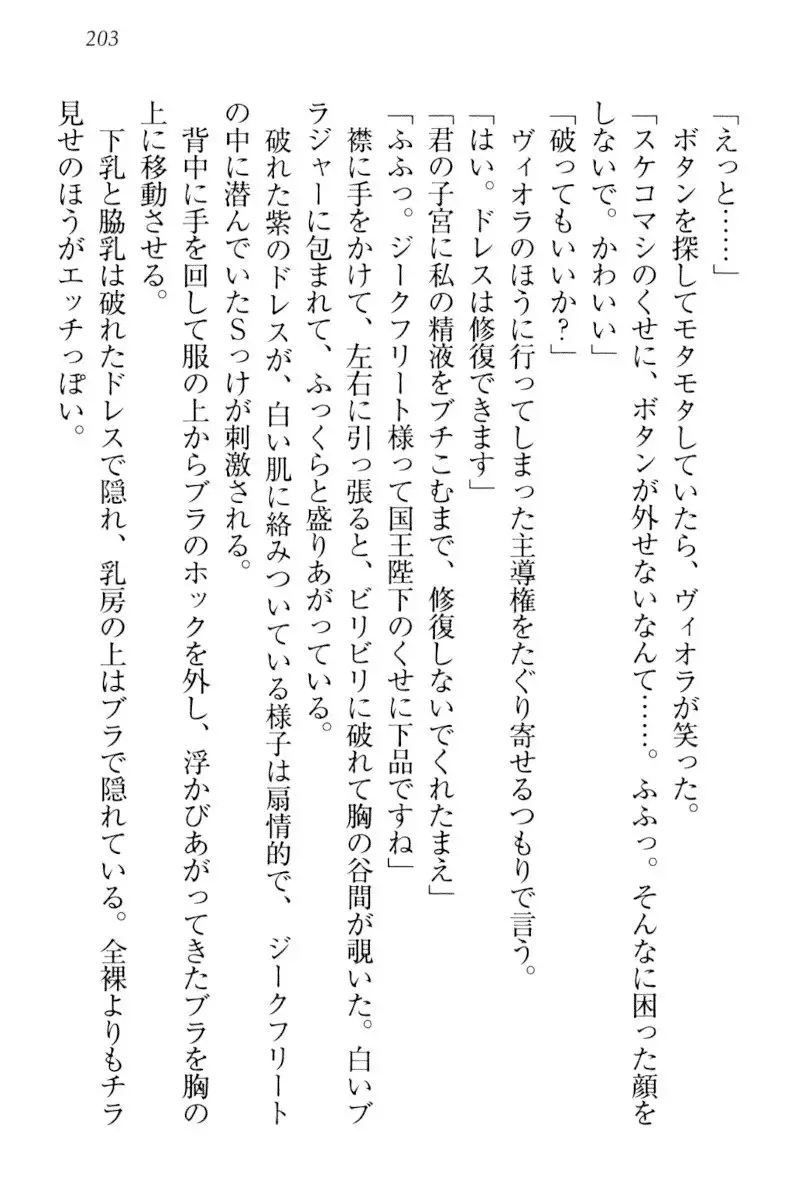 203
「えっと……」
ボタンを探してモタモタしていたら、ヴィオラが笑った。
「スケコマシのくせに、ボタンが外せないなんて……。ふふっ。そんなに困った顔を
しないで。かわいい」
「破ってもいいか?」
ヴィオラのほうに行ってしまった主導権をたぐり寄せるつもりで言う。
「はい。ドレスは修復できます」
「君の子宮に私の精液をブチこむまで、修復しないでくれたまえ」
「ふふっ。ジークフリート様って国王陛下のくせに下品ですね」
襟に手をかけて、左右に引っ張ると、ビリビリに破れて胸の谷間が覗いた。白いブ
ラジャーに包まれて、ふっくらと盛りあがっている。
破れた紫のドレスが、白い肌に絡みついている様子は扇情的で、ジークフリート
の中に潜んでいたSっけが刺激される。
背中に手を回して服の上からブラのホックを外し、浮かびあがってきたブラを胸の
上に移動させる。
下乳と脇乳は破れたドレスで隠れ、乳房の上はブラで隠れている。全裸よりもチラ
見せのほうがエッチっぽい。